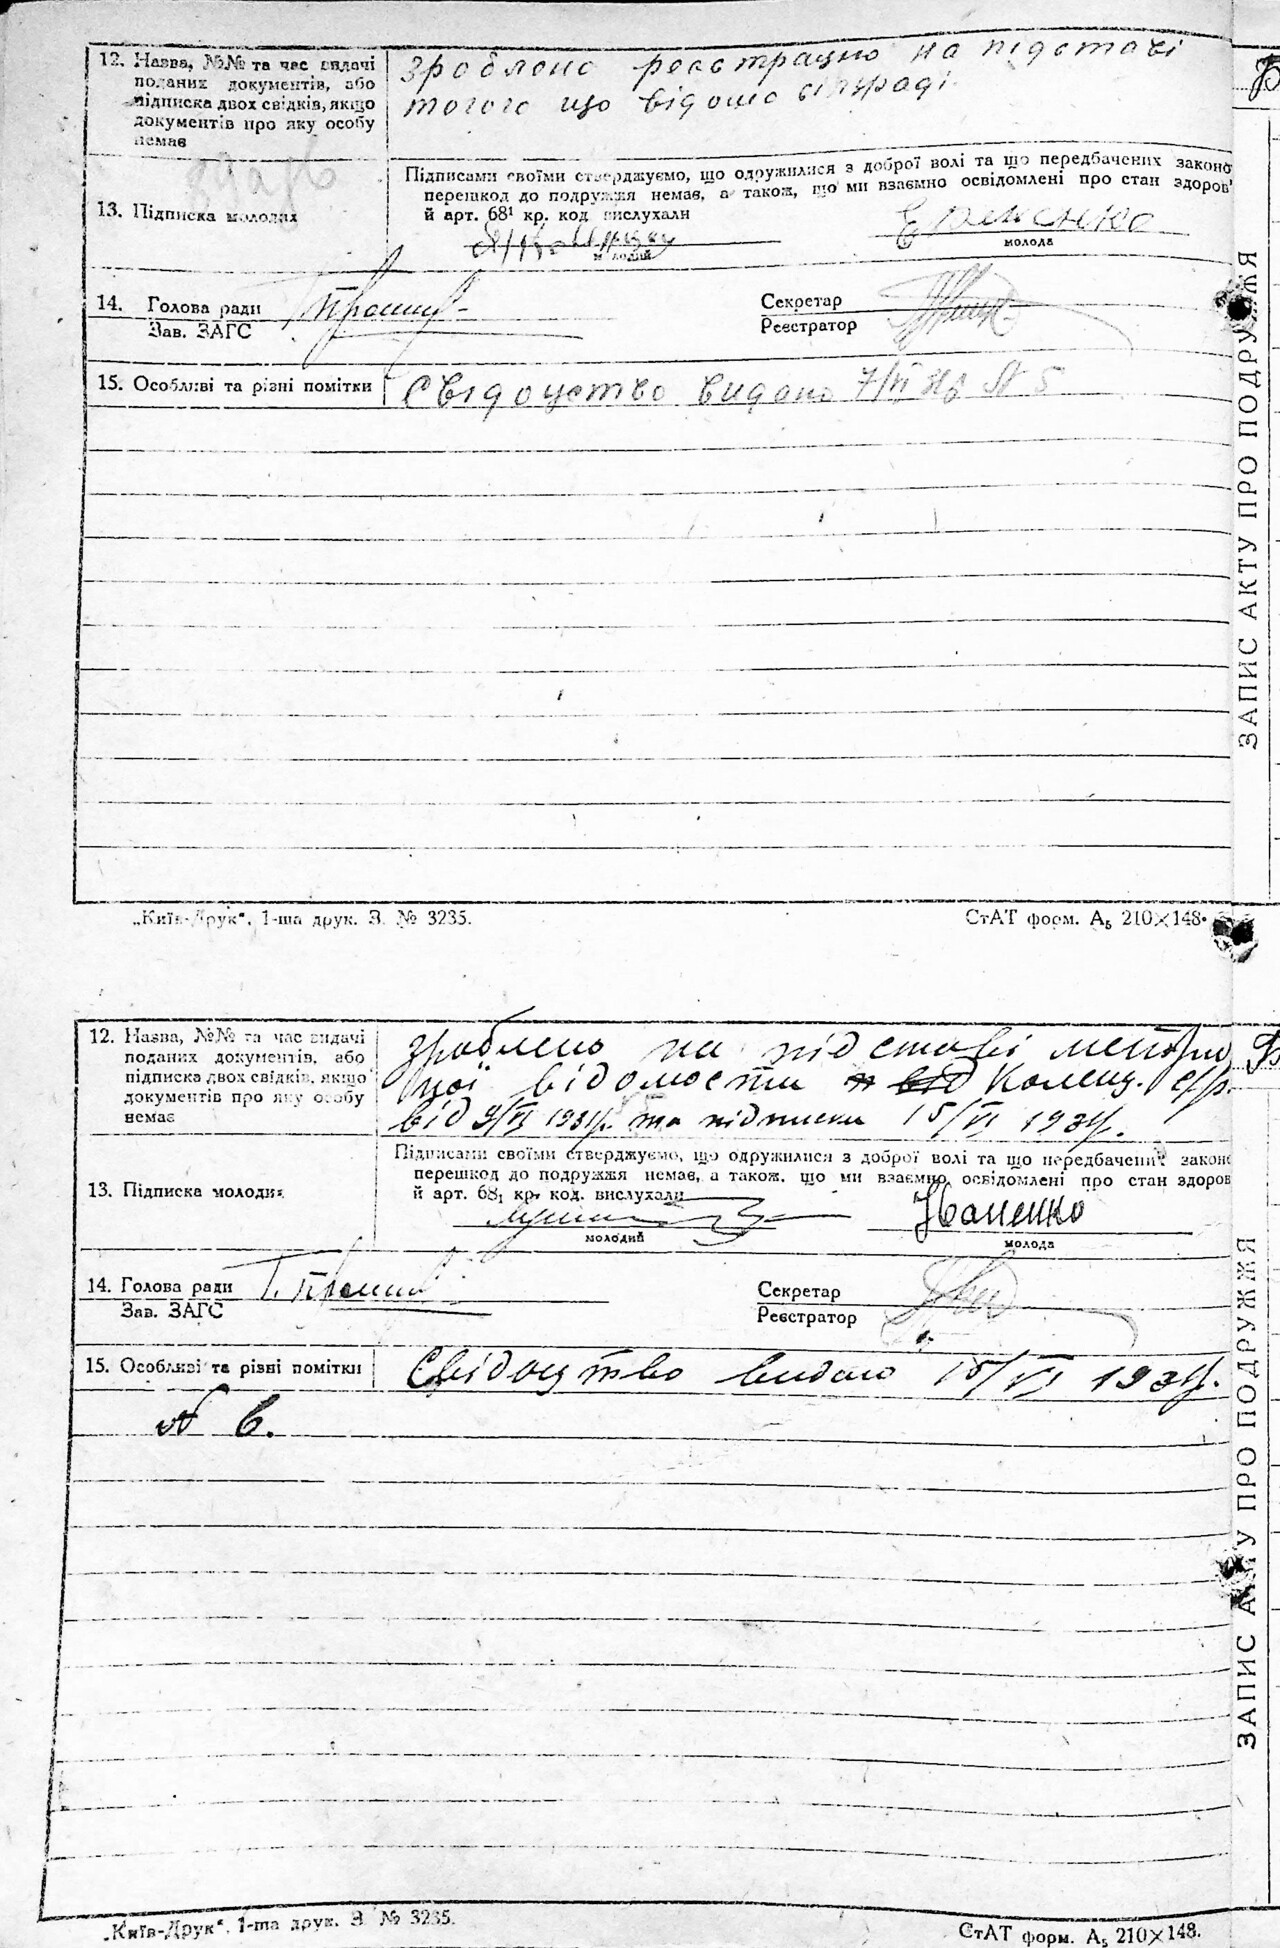 12. Назва, №№ та час видачі
поданих документів, або
підписка двох свідків, якщо
документів про яку особу
немає
зроблено реєстрацію на підставі
того що відомо сільраді
13. Підписка молодих
Підписами своїми стверджуємо, що одружилися з доброї волі та що передбачених законо
перешкод до подружжя немає, а також, що ми взаємно освідомлені про стан здоров'
й арт. 68¹ кр. код вислухали
молодий
молода
14. Голова ради
Зав. ЗАГС
Секретар
Реєстратор
15. Особливі та різні помітки
Свідоцтво видано 7/VI № 5
„Київ-Друк“, 1-ша друк. З. № 3235.
СтАТ форм. А₅ 210×148.
ЗАПИС АКТУ ПРО ПОДРУЖЖЯ
12. Назва, №№ та час видачі
поданих документів, або
підписка двох свідків, якщо
документів про яку особу
немає
зроблено на підставі
відомости
від 9/VI 1934р. та підписки 15/VI 1934р.
13. Підписка молодих
Підписами своїми стверджуємо, що одружилися з доброї волі та що передбачених законо
перешкод до подружжя немає, а також, що ми взаємно освідомлені про стан здоров
й арт. 68₁ кр. код. вислухали
Іваненко
молодий
молода
14. Голова ради
Зав. ЗАГС
Секретар
Реєстратор
15. Особливі та різні помітки
Свідоцтво видано 15/VI 1934р.
№ 6.
„Київ-Друк“, 1-ша друк. З. № 3235.
СтАТ форм. А₅ 210×148.
ЗАПИС АКТУ ПРО ПОДРУЖЖЯ